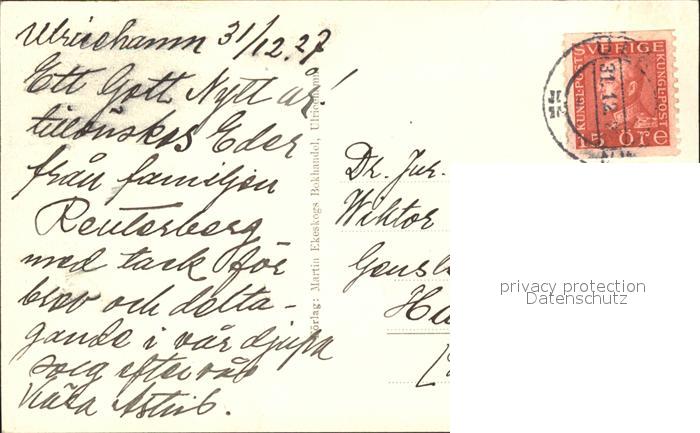 Ulricehamn 31/12.27
Ett Gott Nytt år!
tillönskas Eder
från familjen
Reuterberg
med tack för
brev och delta-
gande i vår djupa
sorg efter vår
kära Astrid.
Förlag: Martin Ekeskogs Bokhandel, Ulricehamn
SVERIGE
KUNGL.POST
KUNGL.POST
15 ÖRE
31.12
Dr. Jur.
Wiktor
Gensl
Ha
privacy protection
Datenschutz